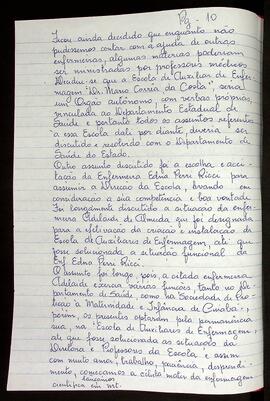 Pg - 10
Ficou ainda decidido que enquanto não
pudessemos contar com a ajuda de outras
enfermeiras, algumas matérias poderiam
ser ministradas por professores médicos.
que a Escola de Auxiliar de Enfer-
magem "Dr. Mario Corrêa da Costa", seria
um Orgão autônomo, com verbas próprias
vinculada ao Departamento Estadual de
Saúde e portanto todos os assuntos referentes
a essa Escola dali por diante, deveria ser
discutido e resolvido com o Departamento de
Saúde do Estado.
Outro assunto discutido foi a escolha e acei-
tação da Enfermeira Edna Perri Ricci para
assumir a Direção da Escola, levando em
consideração a sua competência e boa vontade
Foi longamente discutido a situação da enfer-
meira Adelaide de Almeida que foi designada
para a efetivação da criação e instalação da
Escola de Auxiliares de Enfermagem, até que
fosse solucionada a situação funcional da
Enf. Edna Perri Ricci.
O assunto foi longo, pois a citada enfermeira
Adelaide exercia várias funções, tanto no De-
partamento de Saúde como na Sociedade de Prote-
ção a Maternidade e Infância de Cuiabá,
porém, os presentes optaram pela permanência
sua, na Escola de Auxiliares de Enfermagem,
até que fosse solucionada as situações da
Diretora e Professores da Escola e assim
com muito amor, trabalho, paciência, desprendi-
mento, começamos a célula mater da enfermagem
científica em MT.